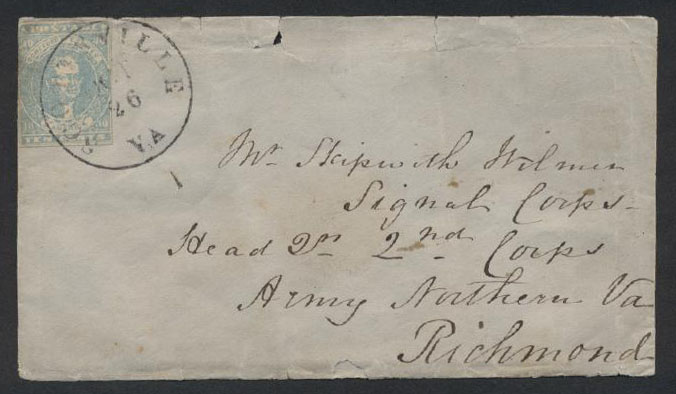 VILLE
26
VA
Mr Skipwith Wilmer
Signal Corps
Head Qrs 2nd Corps
Army Northern Va
Richmond